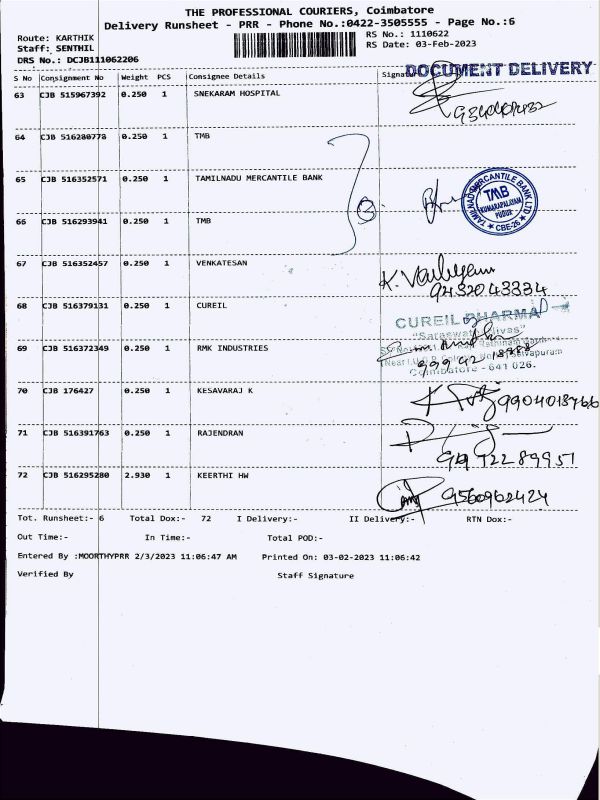 THE PROFESSIONAL COURIERS, Coimbatore
Delivery Runsheet - PRR - Phone No.:0422-3505555 - Page No.:6
Route: KARTHIK
Staff: SENTHIL
DRS No.: DCJB111062206
RS No.: 1110622
RS Date: 03-Feb-2023
DOCUMENT DELIVERY
S No Consignment No Weight PCS Consignee Details
63 CJB 515967392 0.250 1 SNEKARAM HOSPITAL
64 CJB 516280778 0.250 1 TMB
65 CJB 516352571 0.250 1 TAMILNADU MERCANTILE BANK
TAMILNAD MERCANTILE BANK LTD
TMB
KUMARAPALAYAM
PUDUR
CBE-26
66 CJB 516293941 0.250 1 TMB
67 CJB 516352457 0.250 1 VENKATESAN
9432043334
68 CJB 516379131 0.250 1 CUREIL
CUREIL PHARMA
69 CJB 516372349 0.250 1 RMK INDUSTRIES
Selvapuram
Coimbatore - 641 026.
70 CJB 176427 0.250 1 KESAVARAJ K
71 CJB 516391763 0.250 1 RAJENDRAN
72 CJB 516295280 2.930 1 KEERTHI HW
9560962424
Tot. Runsheet:- 6 Total Dox:- 72 I Delivery:- II Delivery:- RTN Dox:-
Out Time:- In Time:- Total POD:-
Entered By :MOORTHYPRR 2/3/2023 11:06:47 AM Printed On: 03-02-2023 11:06:42
Verified By Staff Signature